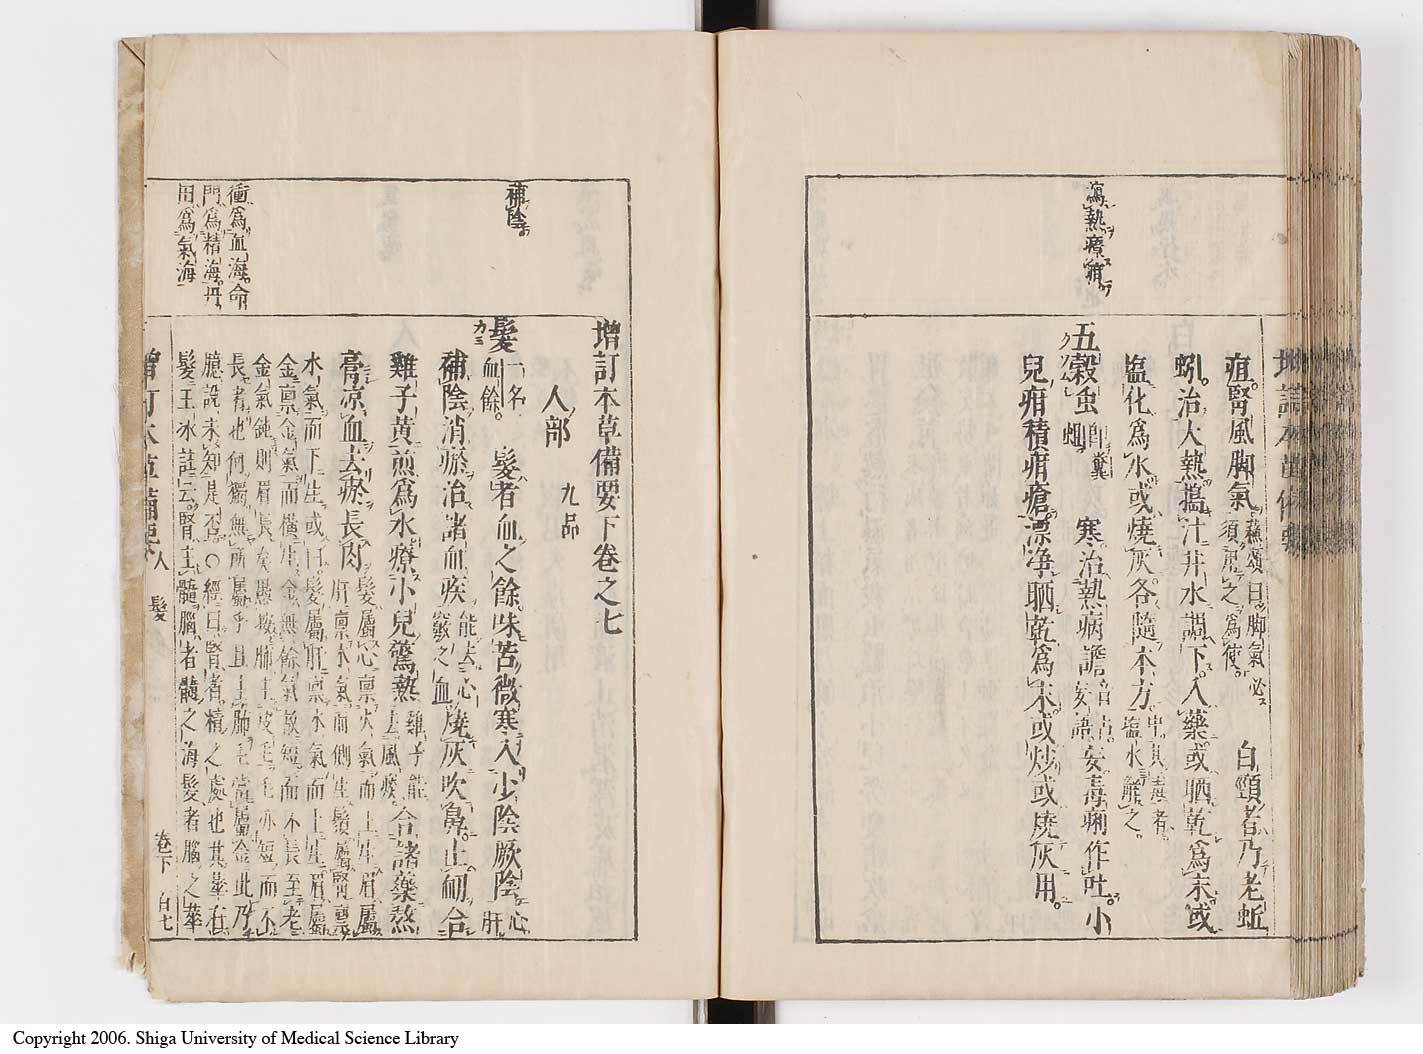 瀉熱療疳
疸。腎風脚氣。蘇頌曰。脚氣必須用之為使。白頸者乃老蚯
蚓。治大熱搗汁井水調下入藥或晒乾為末或
塩化為水或燒灰各隨本方。中其毒者塩水解之。
五穀虫 即糞蛆 寒治熱病譫妄毒痢作吐。小
クソムシ
兒疳積疳瘡。漂淨晒乾為末或炒或燒灰用。
補陰
衝為血海。命
門為精海。丹
田為氣海
增訂本草備要下卷之七
人部 九品
髮 一名血餘。髮者血之餘味苦微寒入少陰厥陰心肝
カミ
補陰消瘀治諸血疾能去心竅之血燒灰吹鼻。止衄合
雞子黃煎為水療小兒驚熱雞子能去風痰合諸藥熬
膏凉血去瘀長肉髮屬心稟火氣而上生眉屬
肝稟木氣而側生鬚屬腎稟
水氣而下生或曰髮屬肝稟木氣而上生眉屬
金稟金氣而橫生金無餘氣故短而不長至老
金氣鈍則眉長矣愚按肺主皮毛毛亦短而不
長者也何獨無所屬乎且主肺毛當屬金此乃
臆說未知是否。〇經曰腎者精之處也其華在
髮王冰註云。腎主髓腦者髓之海髮者腦之華
增訂本草備要 人 髮 卷下 日七